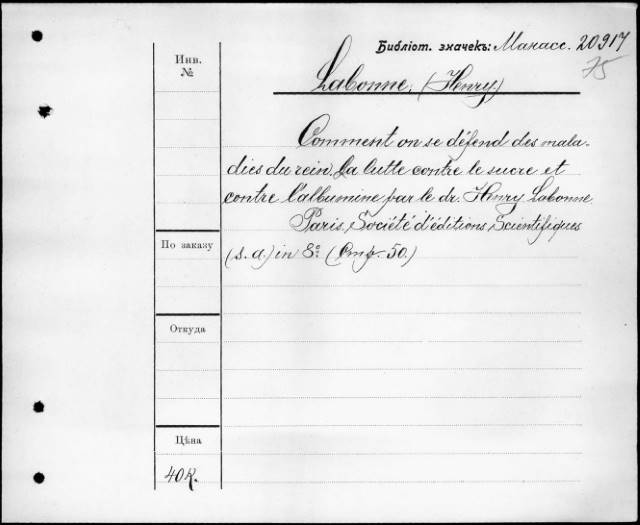 Инв.
№
Библіот. значекъ: Манасс. 20917
75
Labonne, (Henry)
Comment on se défend des mala-
dies du rein. La lutte contre le sucre et
contre l'albumine par le dr. Henry Labonne.
Paris, Société d'éditions Scientifiques
(s. a.) in 8°. (Стр. 50.)
По заказу
Откуда
Цѣна
40к.